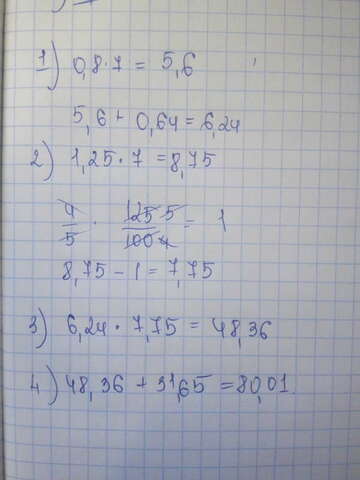 1) 0,8·7 = 5,6
5,6 + 0,64 = 6,24
2) 1,25·7 = 8,75
4/5 · 125 5/100 4 = 1
8,75 - 1 = 7,75
3) 6,24·7,75 = 48,36
4) 48,36 + 31,65 = 80,01